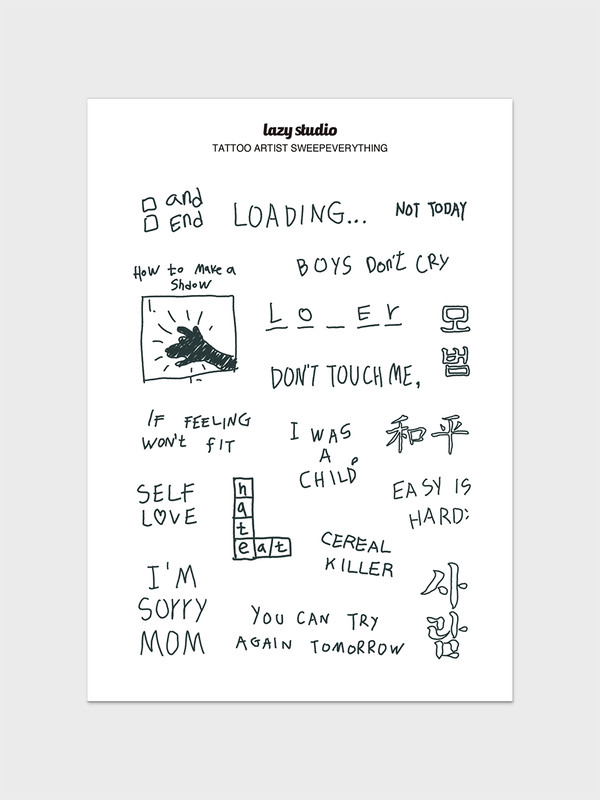 lazy studio
TATTOO ARTIST SWEEPEVERYTHING
and
End
LOADING...
NOT TODAY
BOYS Don't CRY
How to make a
Shdow
1.
L o _ E r
모
범
DON'T TOUCH ME,
IF FEELING
WON'T FIT
I WAS
A
CHILD
和平
SELF
LOVE
h
a
t
eat
EASY IS
HARD:
CEREAL
KILLER
I'M
SORRY
MOM
YOU CAN TRY
AGAIN TOMORROW
사
람